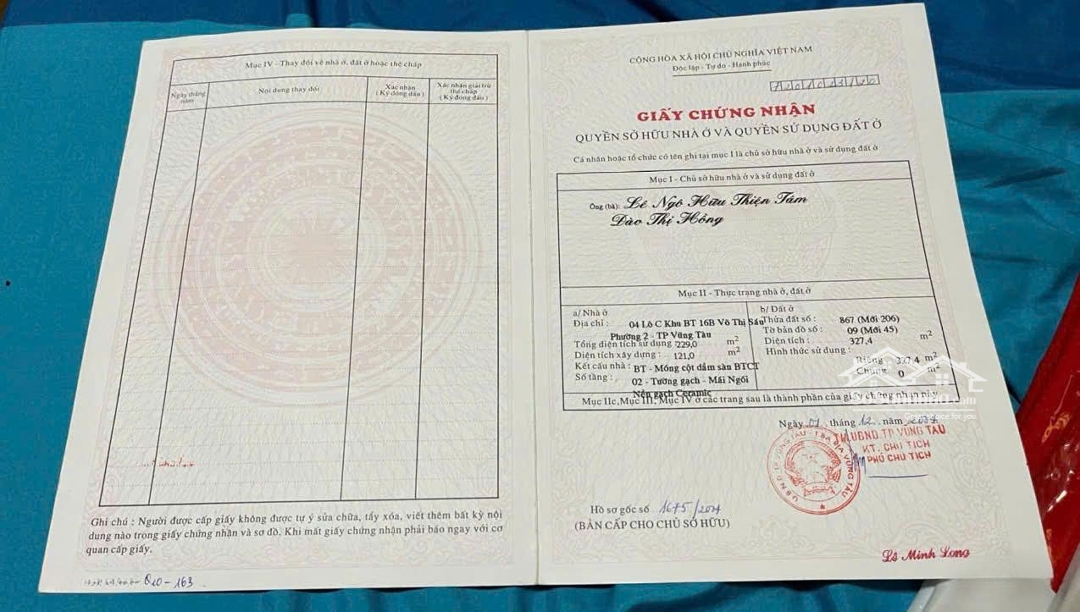 Mục IV - Thay đổi về nhà ở, đất ở hoặc thế chấp
Ngày tháng năm
Nội dung thay đổi
Xác nhận
( Ký đóng dấu )
Xác nhận giải trừ
thế chấp
( Ký đóng dấu )
Ghi chú : Người được cấp giấy không được tự ý sửa chữa, tẩy xóa, viết thêm bất kỳ nội
dung nào trong giấy chứng nhận và sơ đồ. Khi mất giấy chứng nhận phải báo ngay với cơ
quan cấp giấy.
CỘNG HÒA XÃ HỘI CHỦ NGHĨA VIỆT NAM
Độc lập - Tự do - Hạnh phúc
GIẤY CHỨNG NHẬN
QUYỀN SỞ HỮU NHÀ Ở VÀ QUYỀN SỬ DỤNG ĐẤT Ở
Cá nhân hoặc tổ chức có tên ghi tại mục I là chủ sở hữu nhà ở và sử dụng đất ở
Mục I - Chủ sở hữu nhà ở và sử dụng đất ở
Ông (bà): Lê Ngô Hữu Thiện Tâm
Đào Thị Hồng
Mục II - Thực trạng nhà ở, đất ở
a/ Nhà ở
Địa chỉ : 04 Lô C Khu BT 16B Võ Thị Sáu
Phường 2 - TP Vũng Tàu
Tổng diện tích sử dụng : 229,0 m2
Diện tích xây dựng : 121,0 m2
Kết cấu nhà : BT - Móng cột dầm sàn BTCT
Số tầng : 02 - Tường gạch - Mái Ngói
Nền gạch Ceramic
b/ Đất ở
Thửa đất số: 867 (Mới 206)
Tờ bản đồ số: 09 (Mới 45)
Diện tích : 327,4 m2
Hình thức sử dụng :
Riêng : 327,4 m2
Chung : 0 m2
Mục IIc, Mục III, Mục IV ở các trang sau là thành phần của giấy chứng nhận này.
Ngày 01 tháng 12 năm
TM UBND TP VŨNG TÀU
KT. CHỦ TỊCH
PHÓ CHỦ TỊCH
Hồ sơ gốc số 1675/
(BẢN CẤP CHO CHỦ SỞ HỮU)
Lê Minh Long